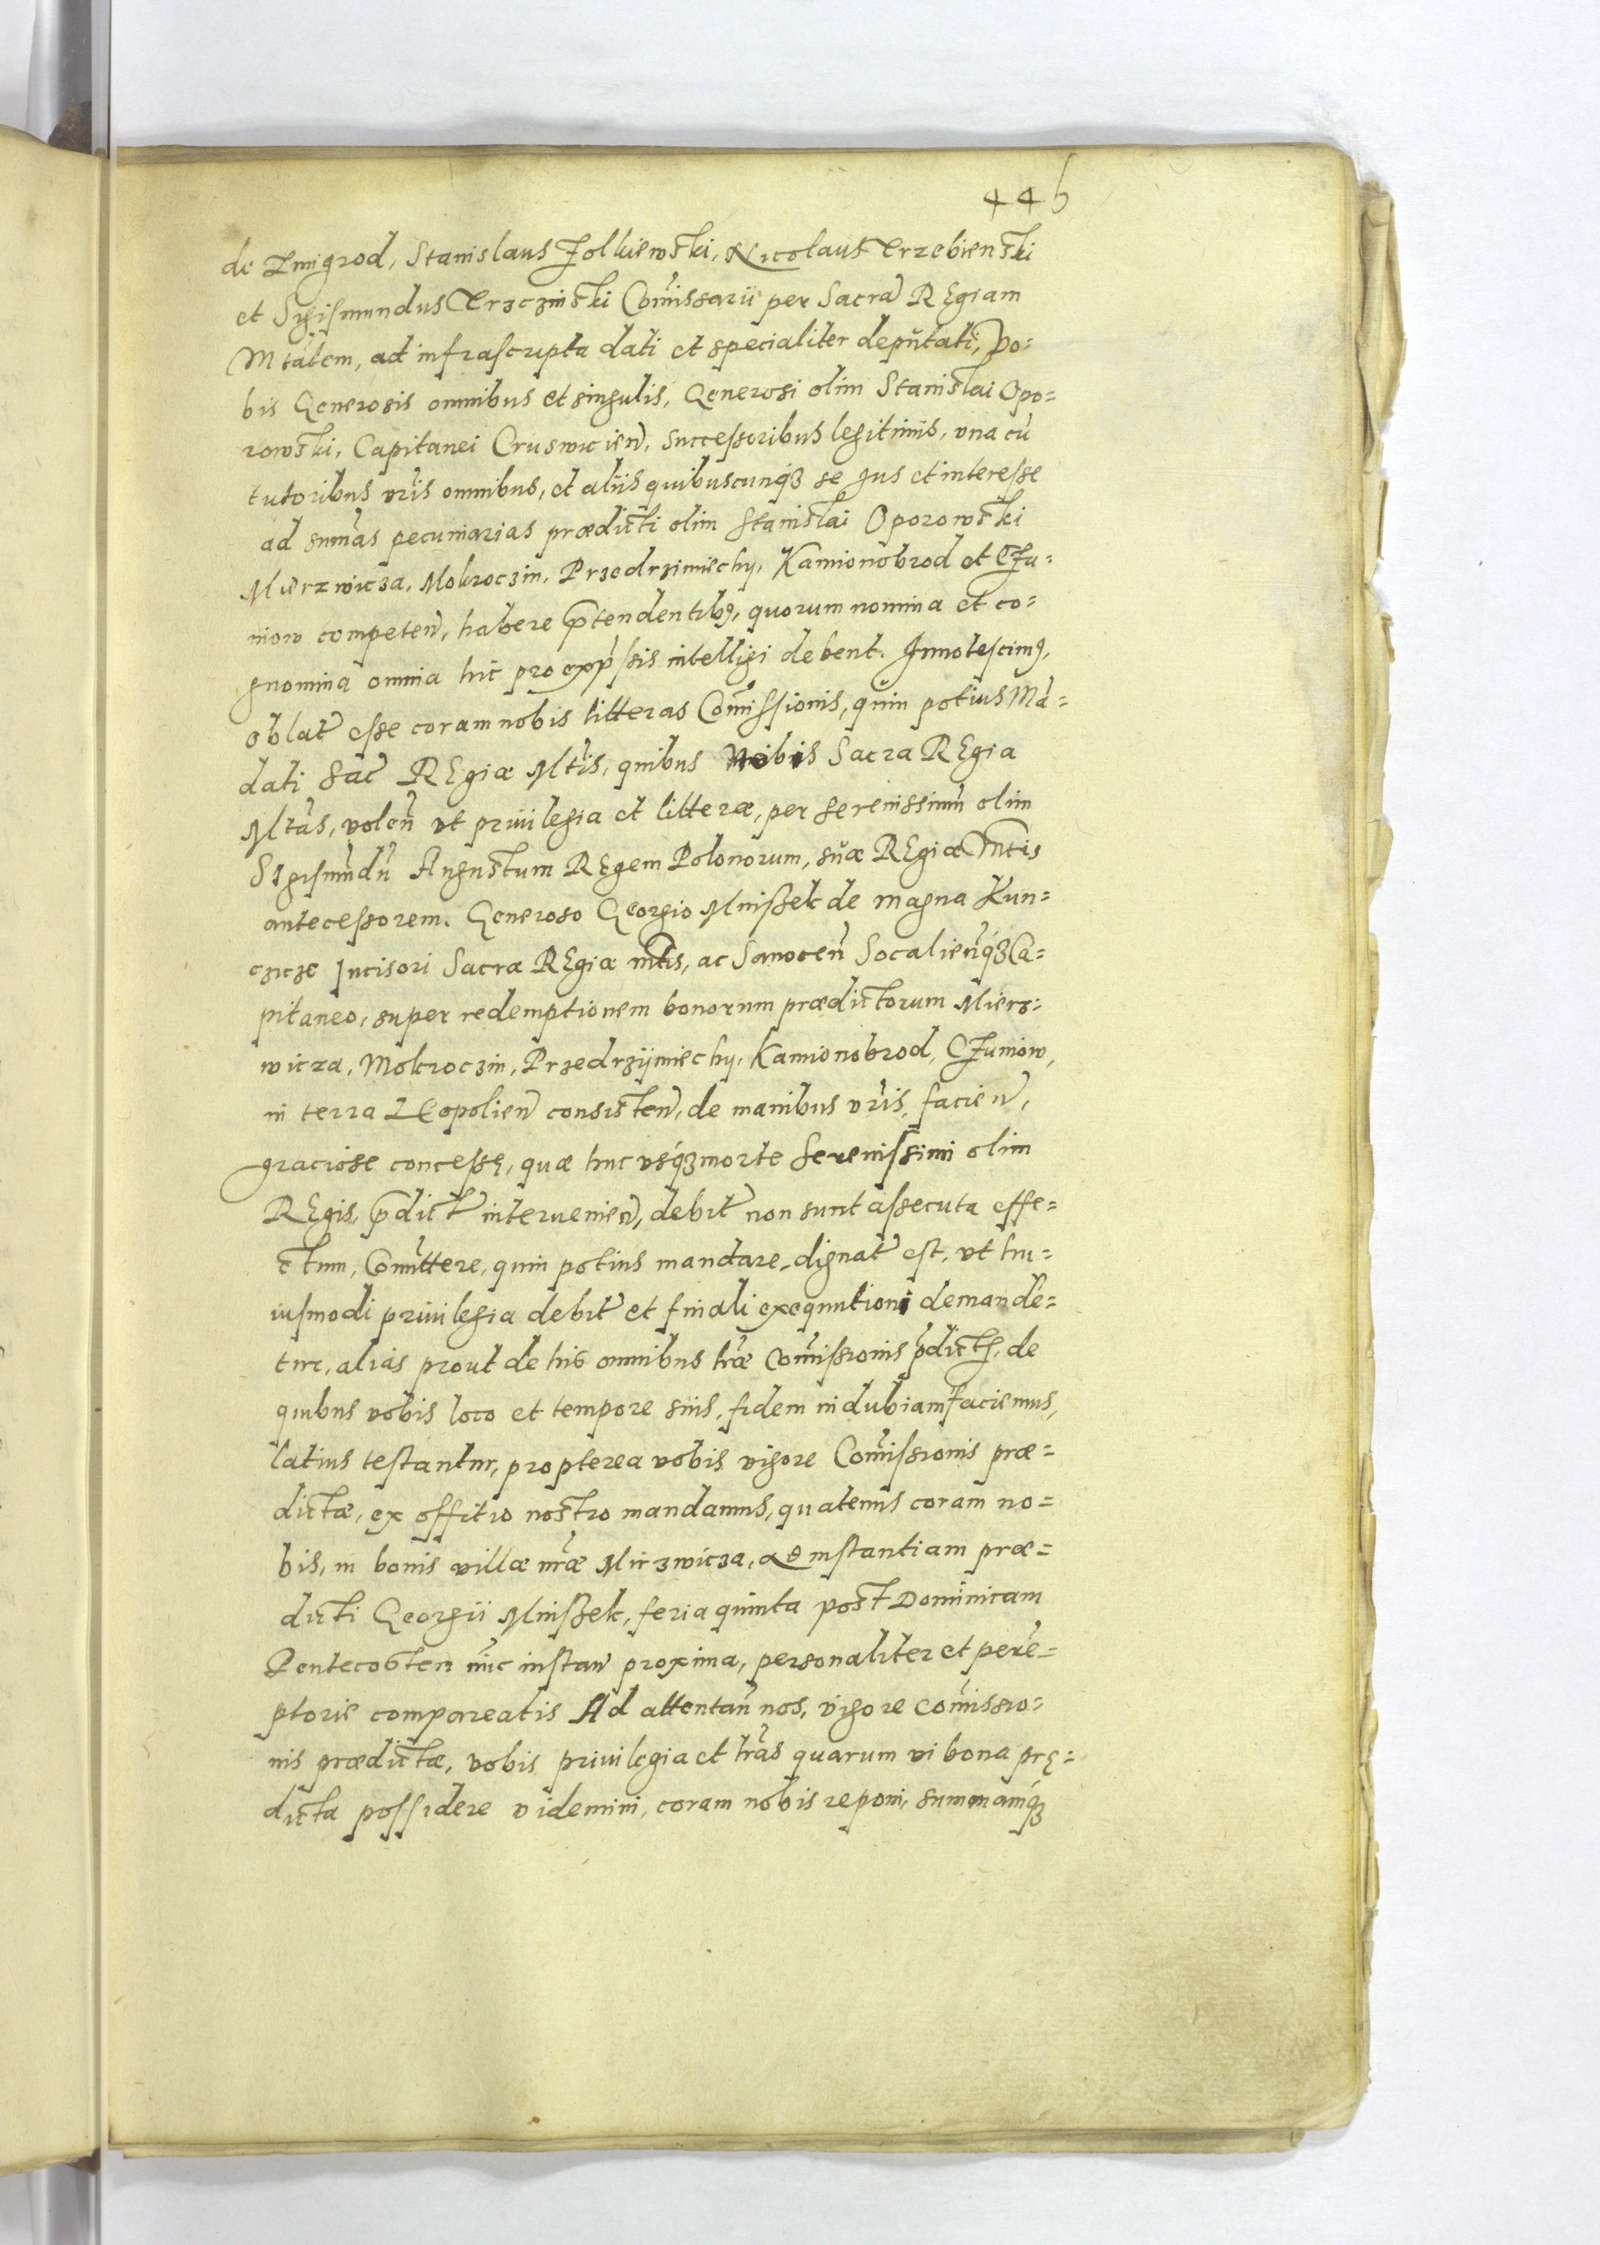 446
de Zmigrod, Stanislaus Zolkiewski, Nicolaus Trzebienski
et Sigismundus Trzczinski Com̃issarii per Sacrã REgiam
Mtãtem, ad infrascripta dati et specialiter deputati, Vo=
bis Generosis omnibus et singulis, Generosi olim Stanislai Opo=
rowski, Capitanei Cruswicieñ, successoribus legitimis, vna cũ
tutoribus vr̃is omnibus, et aliis quibuscunq́ꝫ se Jus et interesse
ad sum̃as pecuniarias prædicti olim Stanislai Oporowski
Mierzwicza, Mokroczin, Przedrzimiechy, Kamionobrod et CZu=
niow competeñ, habere p̃tendentibꝰ, quorum nomina et co=
gnomina omnia hic pro exp̃ssis intelligi debent. Innotescimꝰ,
oblat̃ esse coram nobis litteras Com̃issionis, quin potius Mã=
dati Sac̃ REgiæ Mtis̃, quibus Nobis Sacra REgia
Mtãs, voleñ vt priuilegia et litteræ, per serenissimũ olim
SIgismũdũ Augustum REgem Polonorum, suæ REgiæ Mtis̃
antecessorem. Generoso Georgio Mnisßek de magna Kun=
czicze Incisori Sacræ REgiæ mtis̃, ac Sanoceñ Socalieñq́ꝫ Ca=
pitaneo, super redemptionem bonorum prædictorum Mierz=
wicza, Mokroczin, Przedrziimiechy, Kamionobrod, CZuniow,
in terra LEopolieñ consisteñ, de manibus vr̃is, facieñ,
graciose concessę, quæ huc vsq́ꝫ morte Serenissimi olim
REgis, p̃dict̃ interuenieñ, debit̃ non sunt assecuta effe=
ctum, Com̃ittere, quin potius mandare dignat̃ est, vt hu=
iusmodi priuilegia debit̃ et finali exequutioni demande=
tur, alias prout de his omnibus lr̃æ Com̃issionis p̃dictę, de
quibus vobis loco et tempore suis, fidem indubiam faciemus,
latius testantur, propterea vobis vigore Com̃issionis præ=
dictæ, ex offitio nostro mandamus, quatenus coram no=
bis, in bonis villæ nr̃æ Mirzwicza, AD instantiam præ=
dicti Georgii Mnisßek, feria quinta post Dominicam
Pentecosten nũc instañ proxima, personaliter et perẽ=
ptorie compareatis Ad attentañ nos, vigore com̃issio=
nis prædictæ, vobis priuilegia et lr̃as quarum vi bona prę=
dicta possidere videmini, coram nobis reponi, summamq́ꝫ